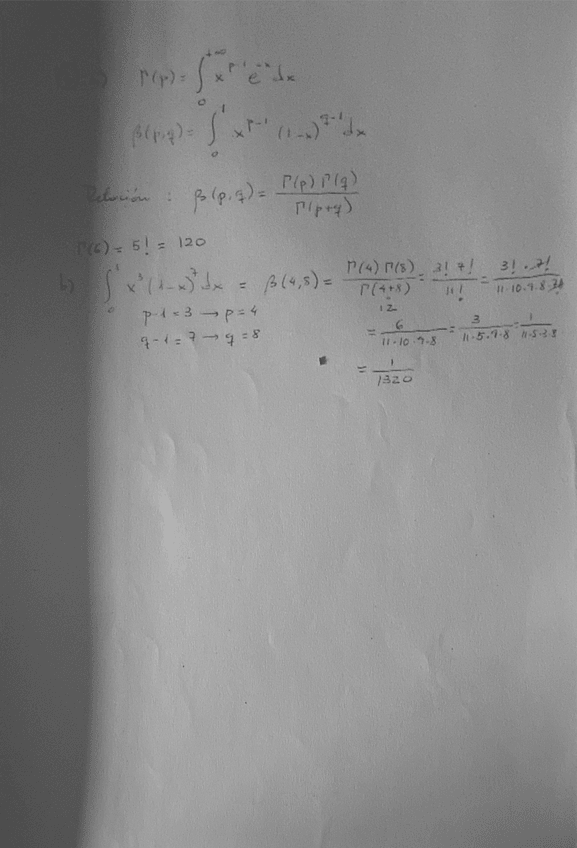 ) Γ(p) = ∫₀^{+∞} x^{p-1} e^{-x} dx
β(p,q) = ∫₀^1 x^{p-1} (1-x)^{q-1} dx
Relación : β(p,q) = Γ(p) Γ(q) / Γ(p+q)
Γ(6) = 5! = 120
b) ∫₀^1 x^3 (1-x)^7 dx = β(4,8) = Γ(4) Γ(8) / Γ(4+8) = 3! 7! / 11! = 3! . 7! / 11·10·9·8·7!
12
p-1 = 3 → p = 4
q-1 = 7 → q = 8
= 6 / 11·10·9·8 = 3 / 11·5·9·8 = 1 / 11·5·3·8
= 1 / 1320